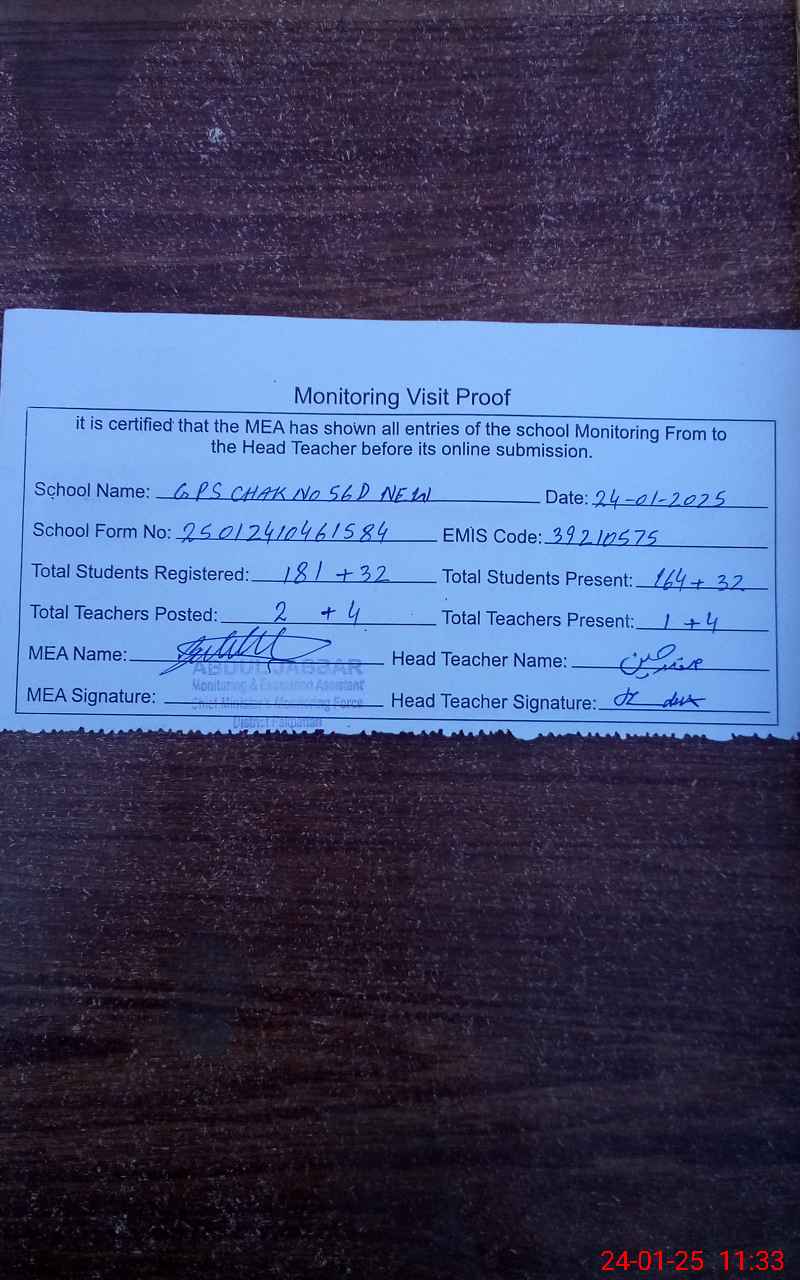 Monitoring Visit Proof
it is certified that the MEA has shown all entries of the school Monitoring From to
the Head Teacher before its online submission.
School Name: GPS CHAK NO 56D NEW Date: 24-01-2025
School Form No: 25012410461584 EMIS Code: 39210575
Total Students Registered: 181 + 32 Total Students Present: 164 + 32
Total Teachers Posted: 2 + 4 Total Teachers Present: 1 + 4
MEA Name: Head Teacher Name:
ABDUL JABBAR
Monitoring & Evaluation Assistant
MEA Signature: Head Teacher Signature:
Chief Minister's Monitoring Force
District Pakpattan
24-01-25 11:33